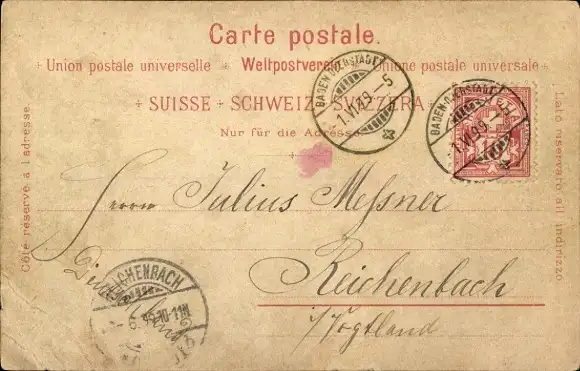 Carte postale.
+ Union postale universelle + Weltpostverein + Unione postale universale +
+ SUISSE + SCHWEIZ + SVIZZERA +
Nur für die Adresse
Côté réservé à l'adresse.
Lato riservato all' indirizzo
BADEN OBERSTADT
1.VI.99.-5
BADEN OBERSTADT
1.VI.99.-5
Herrn Julius Messner
Reichenbach
i/Vogtland
REICHENBACH
6.99.10-11N